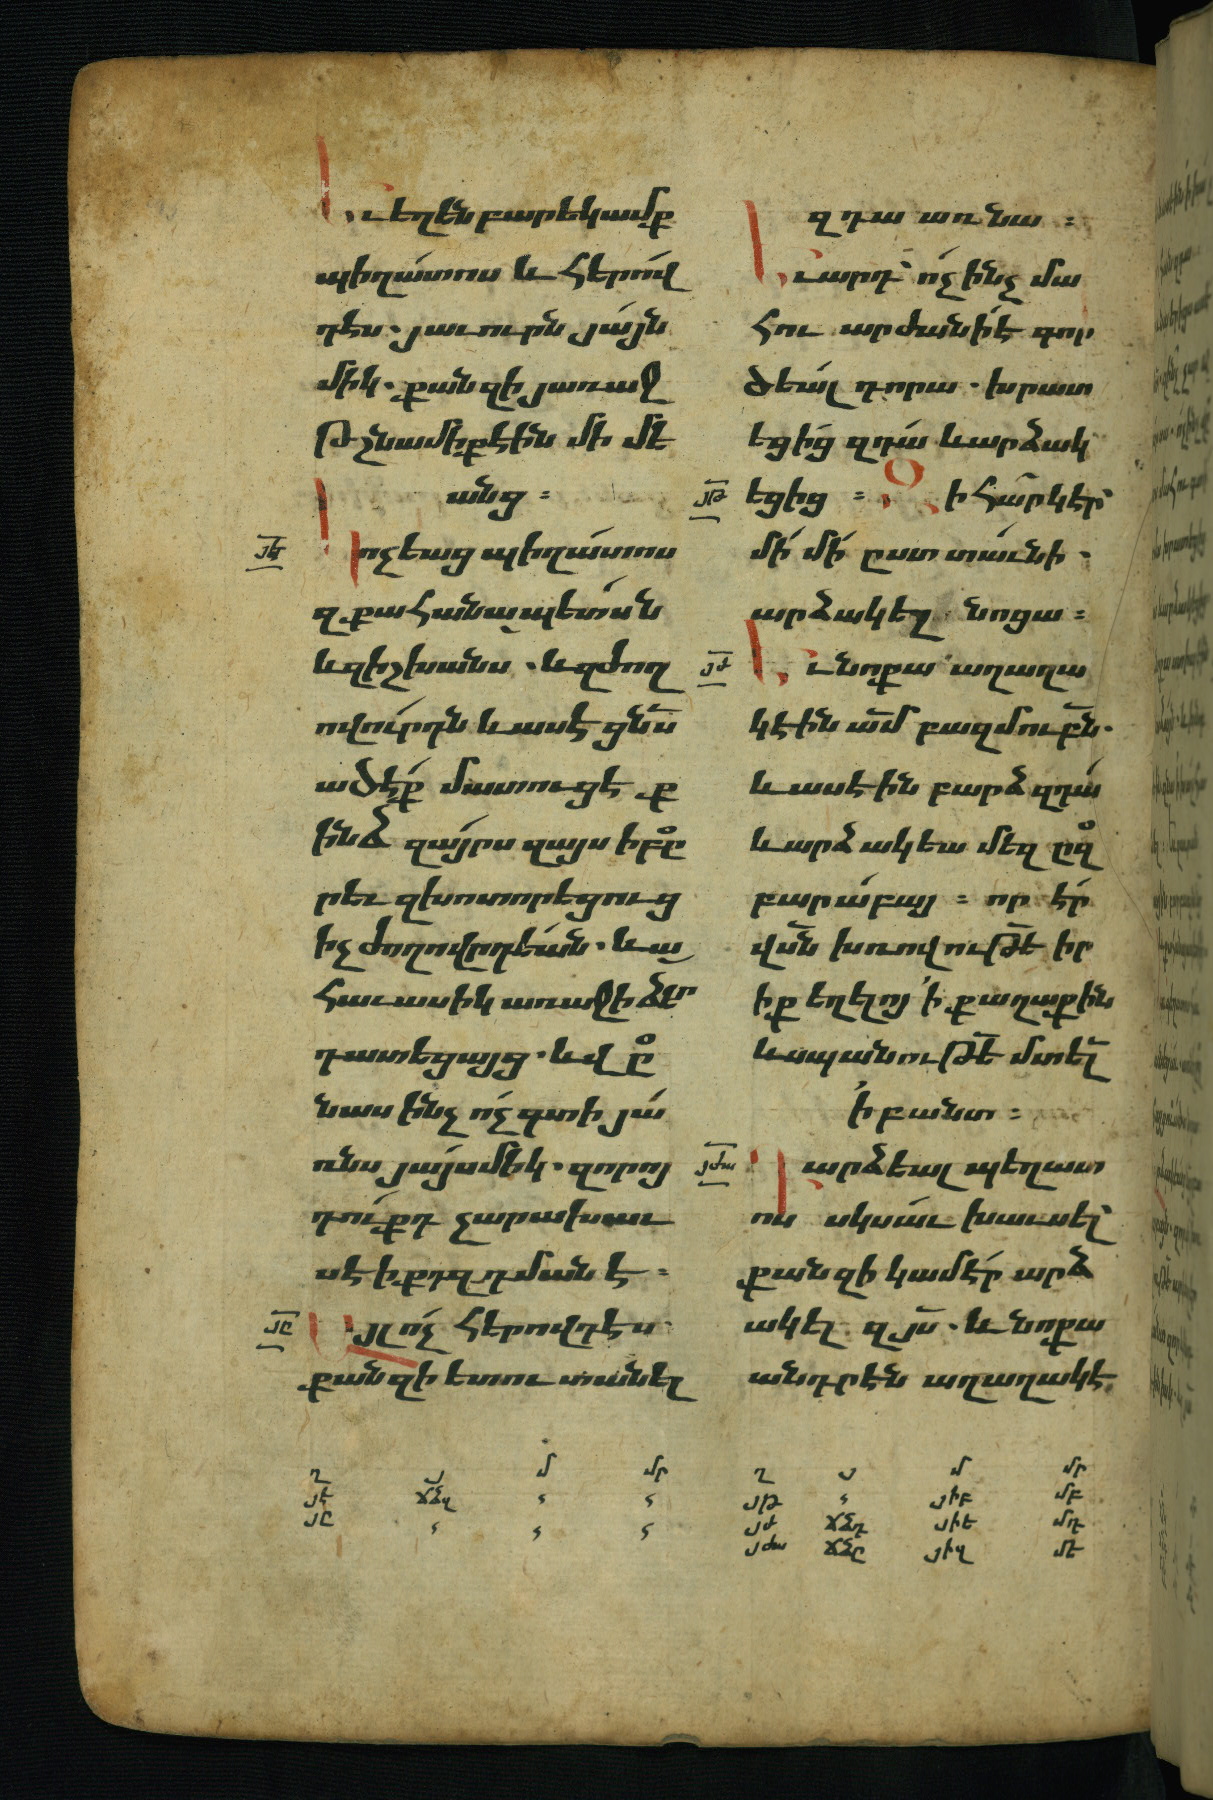 Եւ եղեն բարեկամք
պիղատոս և հերով
դէս. յաւուրն յայն
միկ. քանզի յառաջ
թշնամիք էին մի մէ
անց։
յէ
Կոչեաց պիղատոս
զքահանայպետսն
և զիշխանս. և զժող
ովուրդն և ասէ ցն՞ս
ածէք մատուցէ ք
ինձ զայրս զայս իբը
րեւ զխոտորեցուց
իչ ժողովրդեան. և ա
հաւասիկ առաջի ձեր
դատեցայց. և վ ը
նաս ինչ ոչ գտի յա
ռնս յայսմիկ. զորոյ
դուքդ չարախաւ
սէիքդ զդմանէ։
յը
Այլ ոչ հերովդէս
քանզի ետու տանել
զդա առ նա։
Եւ արդ ոչ ինչ մա
հու արժանի է գոր
ծեալ դորա. խրատ
եցից զդա և արձակ
յթ
եցից։ Զի հարկ էր
մի մի ըստ տաւնի.
արձակել նոցա։
յժ
Եւ նոքա աղաղա
կէին ամ բազմութբն.
և ասէին բարձ զդա
և արձակեա մեզ ըզ
բարաբայ։ որ էր
վսն խռովութե իր
իք եղելոյ ի քաղաքին
և սպանութե մտել
ի բանտ։
յժա
Դարձեալ պեղատ
ոս սկսաւ խաւսել
քանզի կամէր արձ
ակել զյս. և նոքա
անդրէն աղաղակէ
ղ յ մ մր
յէ ՃՁզ
յը
ղ յ մ մր
յթ յիբ մբ
յժ ՃՁդ յիե մդ
յժա ՃՁը յիզ մէ